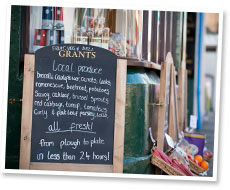 GRANTS
Local produce
broccoli, cauliflower, carrots, leeks
romanesque, beetroot, potatoes
Savoy cabbage, brussel sprouts
red cabbage, turnip, tomatoes
Curly & flat leaf parsley,
all fresh!
from plough to plate
in less than 24 hours!